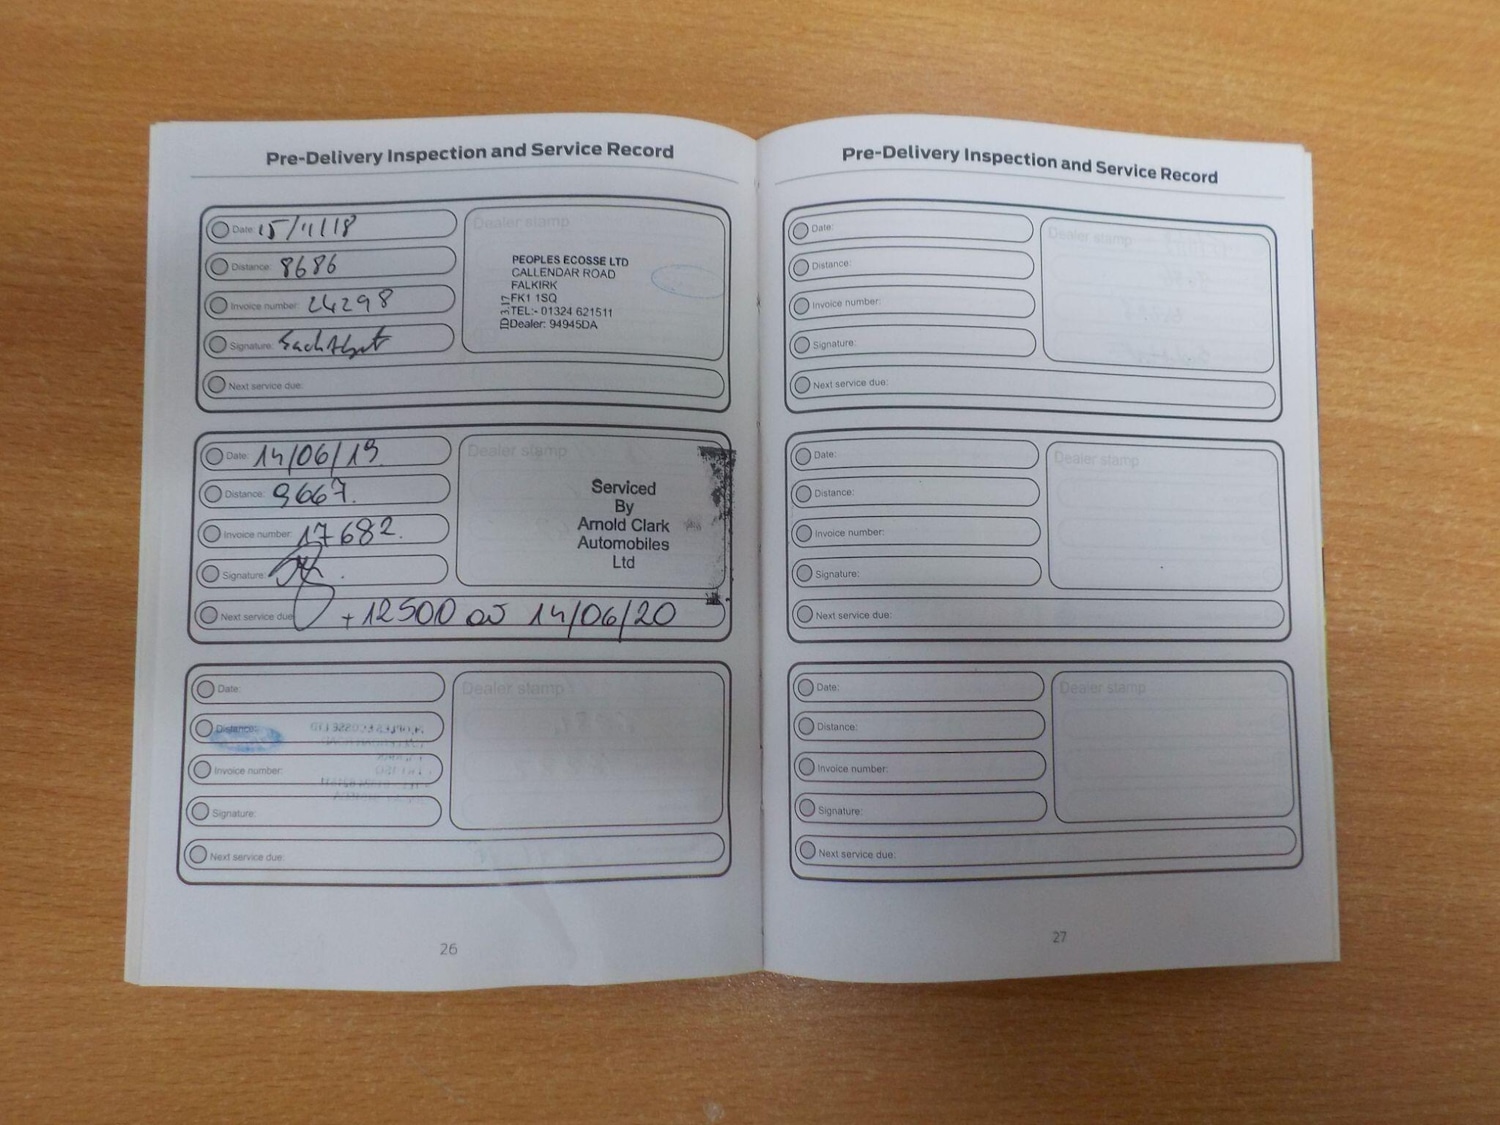 Pre-Delivery Inspection and Service Record
Date: 15/11/18
Distance: 8686
Invoice number: 24298
Signature:
Next service due:
Dealer stamp
PEOPLES ECOSSE LTD
CALLENDAR ROAD
FALKIRK
FK1 1SQ
TEL:- 01324 621511
Dealer: 94945DA
Date: 14/06/19
Distance: 9667.
Invoice number: 17682.
Signature:
Next service due: +12500 or 14/06/20
Dealer stamp
Serviced
By
Arnold Clark
Automobiles
Ltd
Date:
Distance:
Invoice number:
Signature:
Next service due:
Dealer stamp
26
Pre-Delivery Inspection and Service Record
Date:
Distance:
Invoice number:
Signature:
Next service due:
Dealer stamp
Date:
Distance:
Invoice number:
Signature:
Next service due:
Dealer stamp
Date:
Distance:
Invoice number:
Signature:
Next service due:
Dealer stamp
27